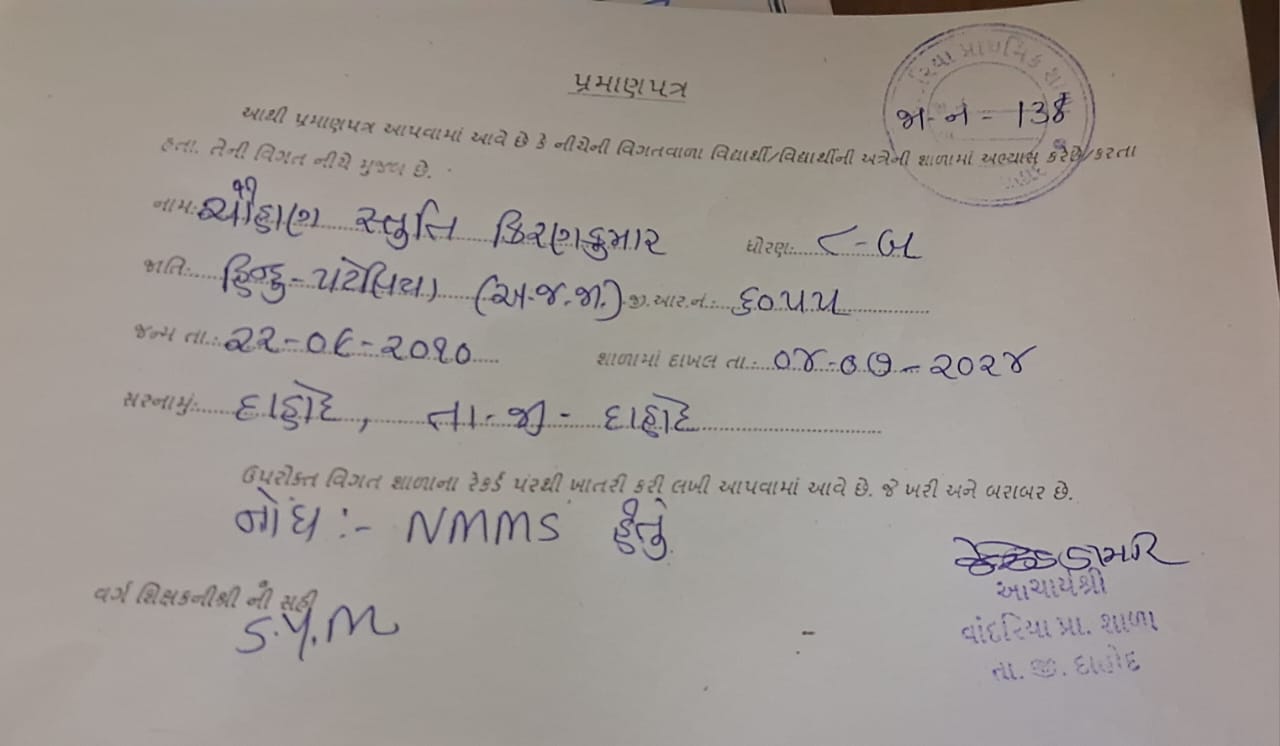 પ્રમાણપત્ર
પ્રાથમિક શા
જા-નં - 138
આથી પ્રમાણપત્ર આપવામાં આવે છે કે નીચેની વિગતવાળા વિદ્યાર્થી/વિદ્યાર્થીની અત્રેની શાળામાં અભ્યાસ કરેછે/કરતા
હતા. તેની વિગત નીચે મુજબ છે.
નામ: ચૌહાણ સ્તુતિ કિરણકુમાર ધોરણ: ૮-બ
જાતિ: હિન્દુ-પટેલિયા (અ.જ.જા.) જી.આર.નં.: ૬૦૫૫
જન્મ તા.: ૨૨-૦૬-૨૦૧૦ શાળામાં દાખલ તા.: ૦૪-૦૭-૨૦૨૪
સરનામું: દાહોદ, તા-જી - દાહોદ
ઉપરોક્ત વિગત શાળાના રેકર્ડ પરથી ખાતરી કરી લખી આપવામાં આવે છે. જે ખરી અને બરાબર છે.
નોંધ :- NMMS હેતુ
વર્ગ શિક્ષકનીશ્રી ની સહી
S.Y.M
આચાર્યશ્રી
વાંદરિયા પ્રા. શાળા
તા. જી. દાહોદ